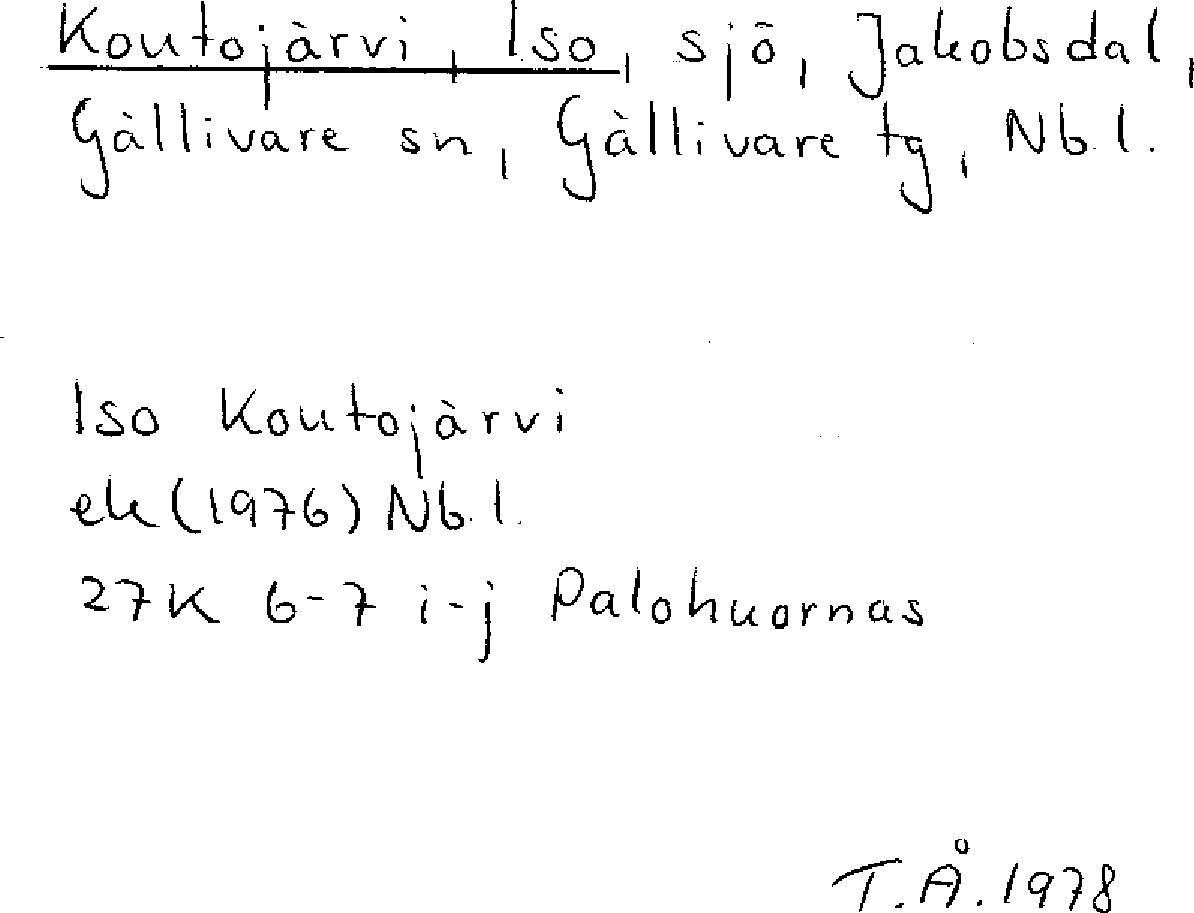 Koutojärvi, Iso, sjö, Jakobsdal,
Gällivare sn, Gällivare tg, Nb.l.
Iso Koutojärvi
ek (1976) Nb.l.
27K 6-7 i-j Palohuornas
T.Å. 1978